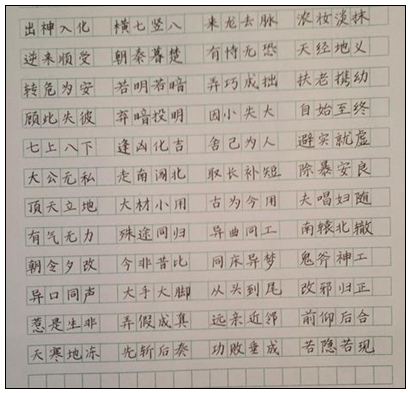 出神入化 横七竖八 来龙去脉 浓妆淡抹
逆来顺受 朝秦暮楚 有恃无恐 天经地义
转危为安 若明若暗 弄巧成拙 扶老携幼
顾此失彼 弃暗投明 因小失大 自始至终
七上八下 逢凶化吉 舍己为人 避实就虚
大公无私 走南闯北 取长补短 除暴安良
顶天立地 大材小用 古为今用 夫唱妇随
有气无力 殊途同归 异曲同工 南辕北辙
朝令夕改 今非昔比 同床异梦 鬼斧神工
异口同声 大手大脚 从头到尾 改邪归正
惹是生非 弄假成真 远亲近邻 前仰后合
天寒地冻 先斩后奏 功败垂成 若隐若现